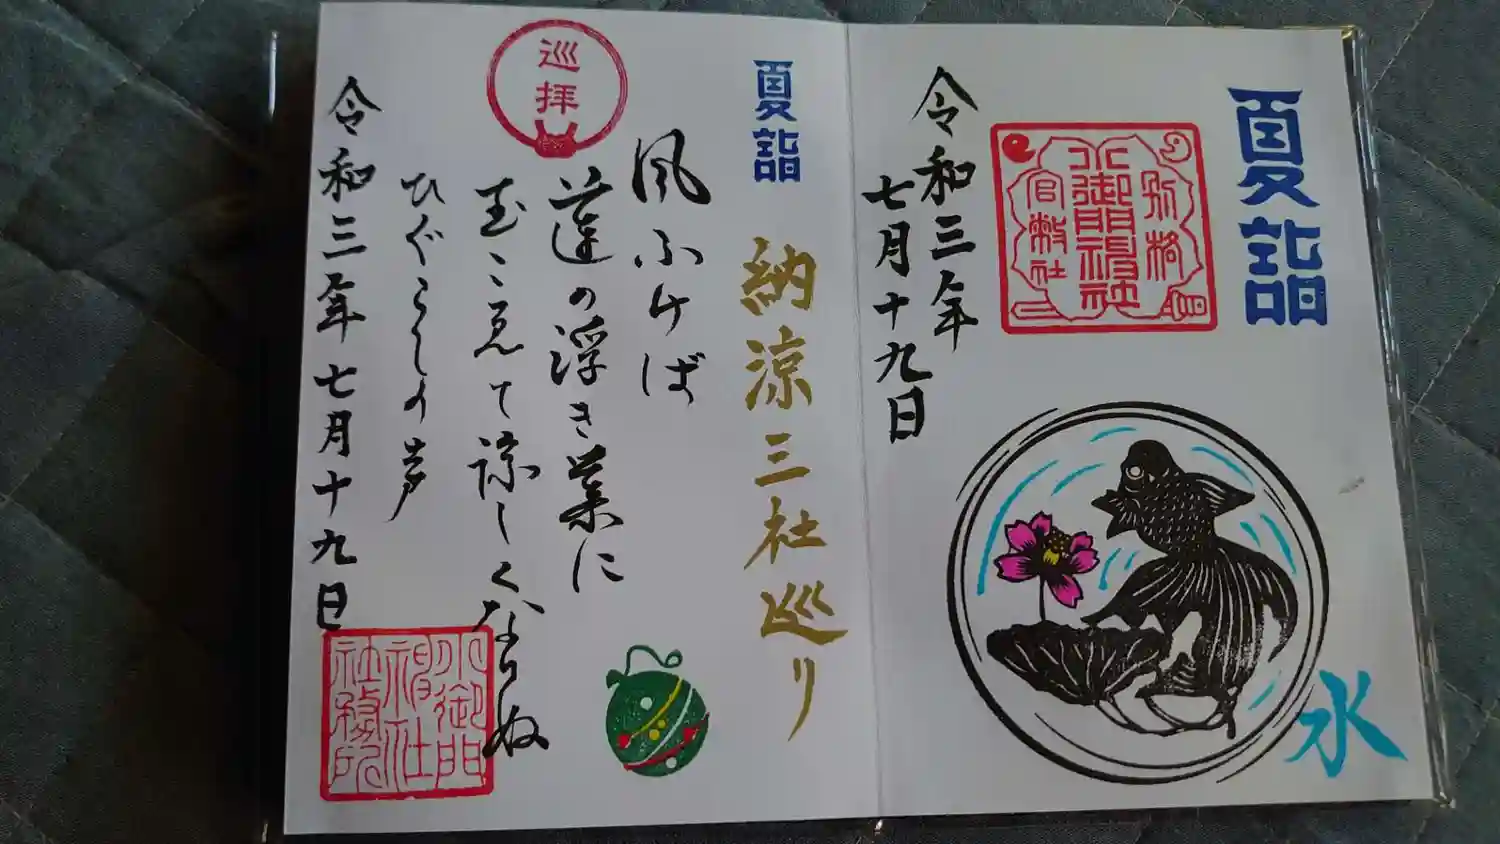 夏詣
別格
小御門神社
官幣社
令和三年
七月十九日
水
夏詣
納涼三社巡り
巡拝
風ふけば
蓮の浮き葉に
玉こえて涼しくなりぬ
ひぐらしの声
令和三年七月十九日
小御門
神社
社務所